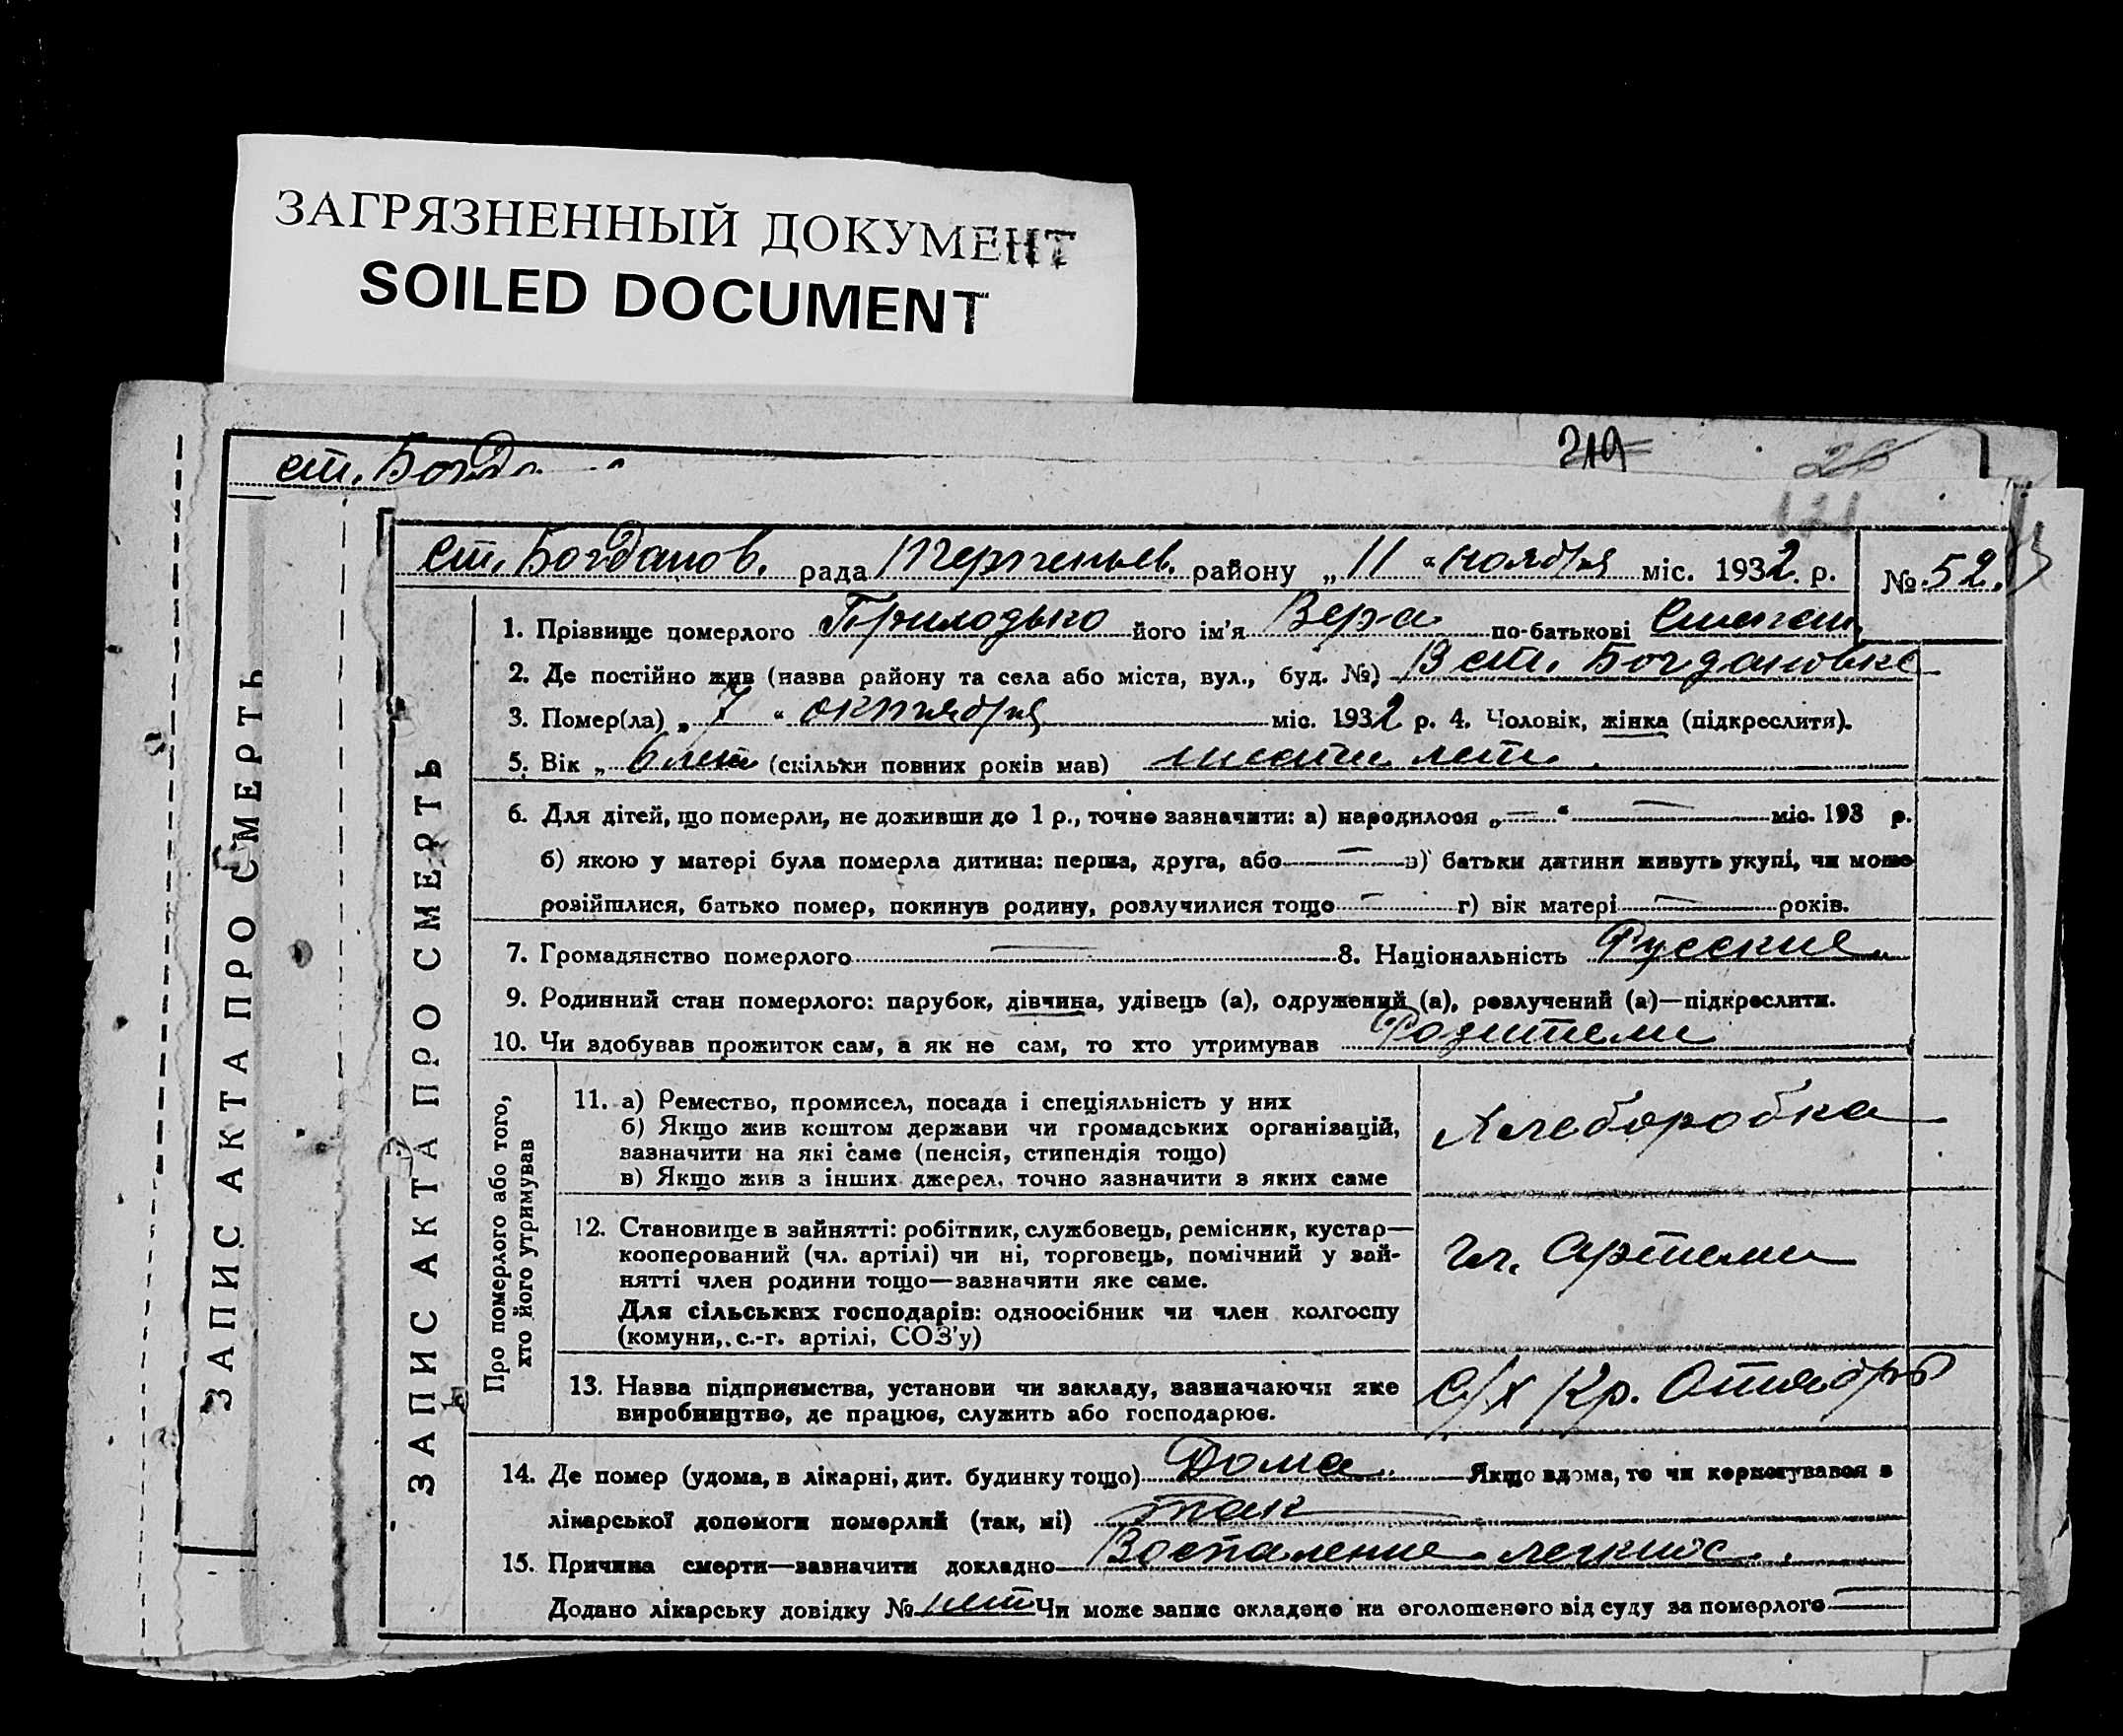 ЗАГРЯЗНЕННЫЙ ДОКУМЕНТ
SOILED DOCUMENT
219
ст. Богда
121
ст. Богданов. рада района „11 “ ноября міс. 1932. р. № 52.
1. Прізвище померлого Приходько його ім'я Вера по-батькові Степан
2. Де постійно жив (назва району та села або міста, вул., буд. №) В ст. Богдановке
3. Помер(ла) „ 7 “ октября міс. 1932 р. 4. Чоловік, жінка (підкреслити).
5. Вік „ 6 лет (скільки повних років мав) шесть лет.
6. Для дітей, що померли, не доживши до 1 р., точно зазначити: а) народилося „—“ — міс. 193 р.
б) якою у матері була померла дитина: перша, друга, або — в) батьки дитини живуть укупі, чи може
розійшлися, батько помер, покинув родину, розлучилися тощо — г) вік матері — років.
7. Громадянство померлого — 8. Національність Русские
9. Родинний стан померлого: парубок, дівчина, удівець (а), одружений (а), розлучений (а)—підкреслити.
10. Чи здобував прожиток сам, а як не сам, то хто утримував Родители
Про померлого або того,
хто його утримував
11. а) Ремество, промисел, посада і спеціяльність у них
б) Якщо жив коштом держави чи громадських організацій,
зазначити на які саме (пенсія, стипендія тощо)
в) Якщо жив з інших джерел, точно зазначити з яких саме
Хлеборобка
12. Становище в зайнятті: робітник, службовець, ремісник, кустар—
кооперований (чл. артілі) чи ні, торговець, помічний у зай-
нятті член родини тощо—зазначити яке саме.
Для сільських господарів: одноосібник чи член колгоспу
(комуни, с.-г. артілі, СОЗ'у)
Чл. Артели
13. Назва підприємства, установи чи закладу, зазначаючи яке
виробництво, де працює, служить або господарює.
С/х Кр. Отябрь
14. Де помер (удома, в лікарні, дит. будинку тощо) Дома. Якщо вдома, то чи користувався з
лікарської допомоги померлий (так, ні) так
15. Причина смерти—зазначити докладно Воспаление легких.
Додано лікарську довідку № нет Чи може запис складено на оголошеного від суду за померлого —
ЗАПИС АКТА ПРО СМЕРТЬ
ЗАПИС АКТА ПРО СМЕРТЬ